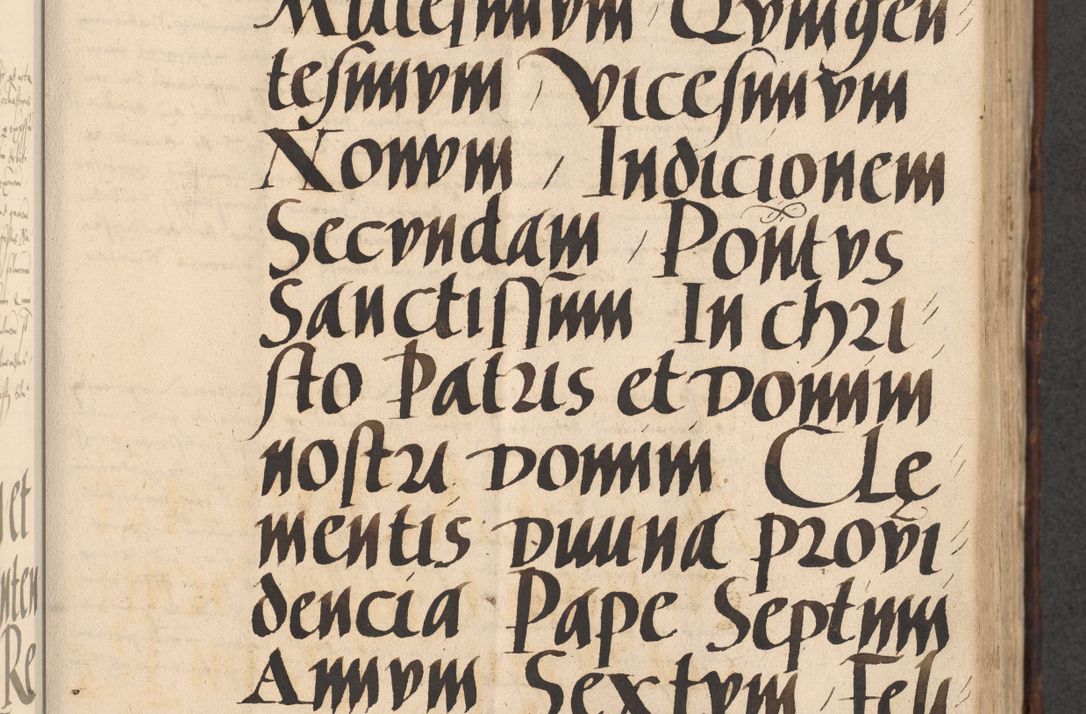 Millesimvm / Qvingen
tesimvm / Vicesimvm
Nonvm / Indicionem
Secvndam / Pontvs
Sanctissimi In chri
sto Patris et Domini
nostri Domini Cle
mentis Diuina provi
dencia Pape Septimi
Annvm Sextvm / Feli
et
nten
Re